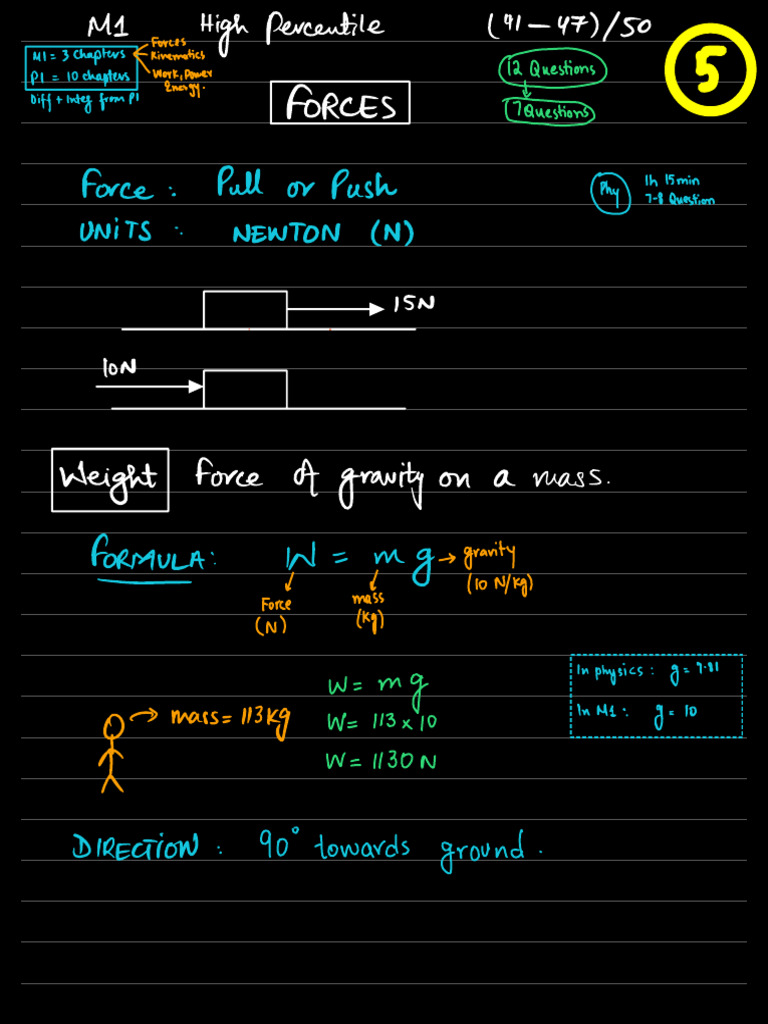 M1 High Percentile (41 – 47)/50
M1 = 3 Chapters
P1 = 10 chapters
Diff + Integ from P1
Forces
Kinematics
Work, Power
Energy.
12 Questions
7 Questions
5
FORCES
Force : Pull or Push
UNITS : NEWTON (N)
Phy
1h 15min
7-8 Question
15N
10N
Weight Force of gravity on a mass.
FORMULA: W = m g
gravity
(10 N/kg)
Force
(N)
mass
(kg)
In physics : g = 9.81
In M1 : g = 10
mass = 113kg
W = mg
W = 113 × 10
W = 1130 N
DIRECTION : 90° towards ground .